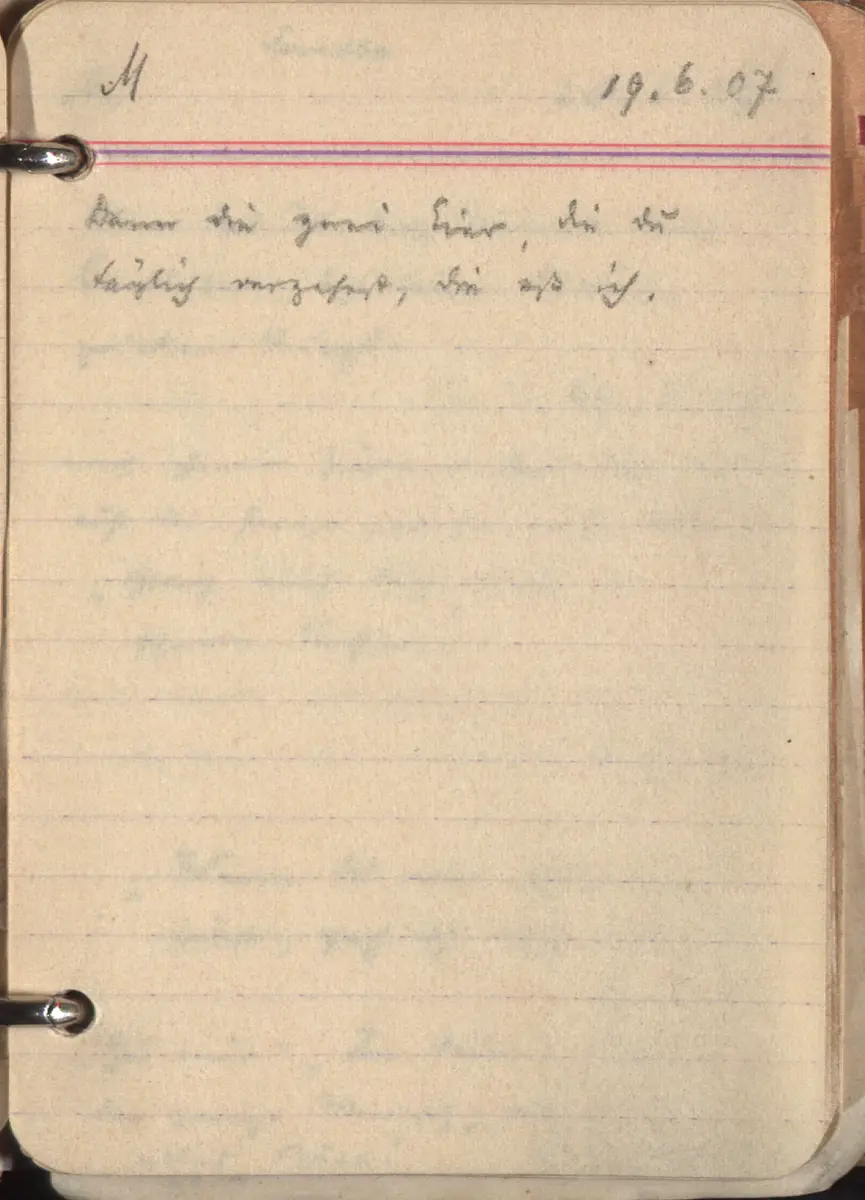 M 19.6.07
Denn die zwei Eier, die du
täglich verzehrst, die eß ich.